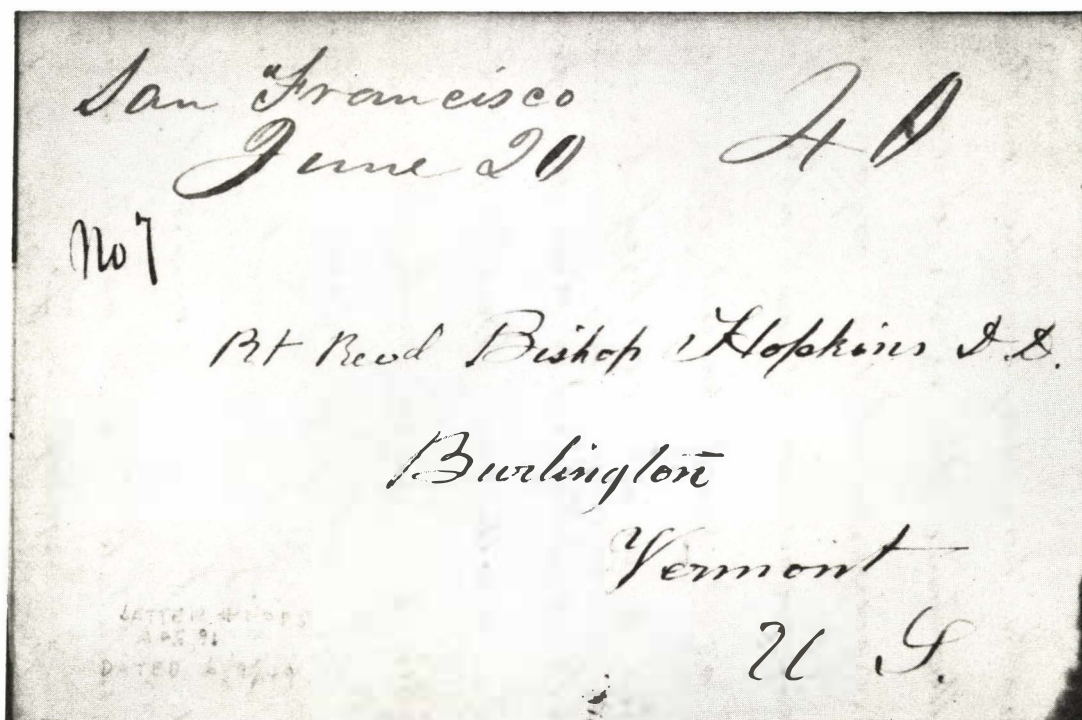 San Francisco
June 20 40
No 7
Rt Revd Bishop Hopkins D D.
Burlington
Vermont
U S.
DATED